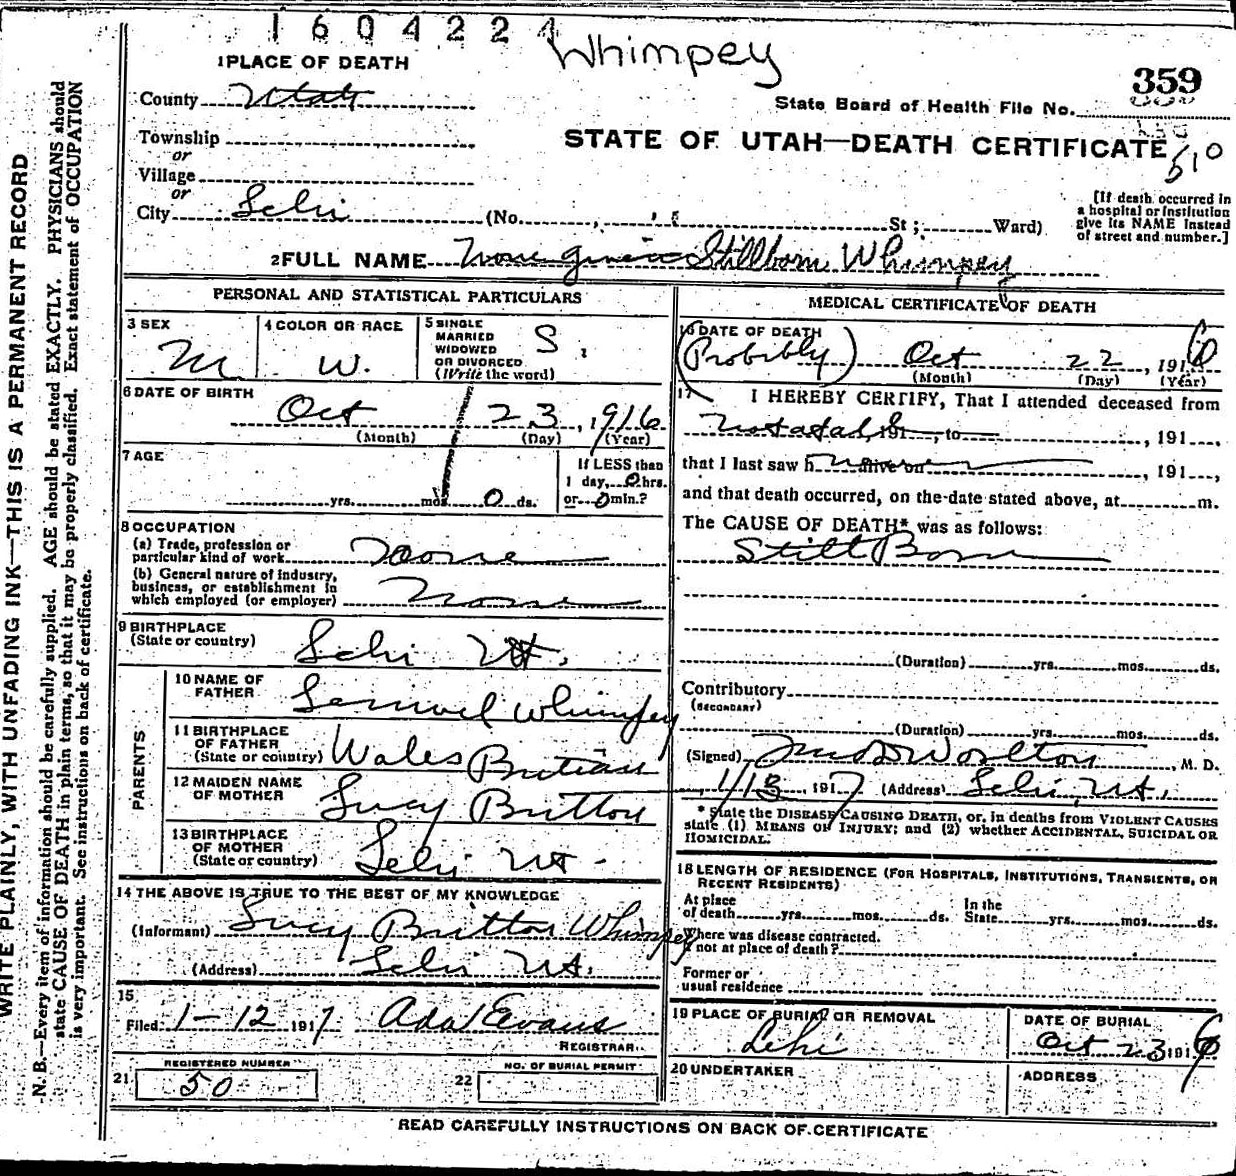 1604224
Whimpey
359
State Board of Health File No.
510
STATE OF UTAH—DEATH CERTIFICATE
1 PLACE OF DEATH
County Utah
Township
or
Village
or
City Lehi (No. St; Ward)
[If death occurred in
a hospital or institution
give its NAME instead
of street and number.]
2 FULL NAME None given Stillborn Whimpey
PERSONAL AND STATISTICAL PARTICULARS
3 SEX
M
4 COLOR OR RACE
W.
5 SINGLE
MARRIED
WIDOWED
OR DIVORCED
(Write the word)
S.
6 DATE OF BIRTH
Oct 23, 1916
(Month) (Day) (Year)
7 AGE
yrs. mos. 0 ds.
If LESS than
1 day, 0 hrs.
or 0 min.?
8 OCCUPATION
(a) Trade, profession or
particular kind of work None
(b) General nature of industry,
business, or establishment in
which employed (or employer) None
9 BIRTHPLACE
(State or country) Lehi Ut.
PARENTS
10 NAME OF
FATHER Samuel Whimpey
11 BIRTHPLACE
OF FATHER
(State or country) Wales Britian
12 MAIDEN NAME
OF MOTHER Lucy Britton
13 BIRTHPLACE
OF MOTHER
(State or country) Lehi Ut
14 THE ABOVE IS TRUE TO THE BEST OF MY KNOWLEDGE
(Informant) Lucy Britton Whimpey
(Address) Lehi Ut.
15
Filed 1-12 1917 Ada Evans
REGISTRAR
REGISTERED NUMBER
21 50
NO. OF BURIAL PERMIT
22
MEDICAL CERTIFICATE OF DEATH
16 DATE OF DEATH
(Probibly) Oct 22, 1916
(Month) (Day) (Year)
17 I HEREBY CERTIFY, That I attended deceased from
Not at all, 191, to , 191,
that I last saw h alive on , 191,
and that death occurred, on the date stated above, at m.
The CAUSE OF DEATH* was as follows:
Still Born
(Duration) yrs. mos. ds.
Contributory
(SECONDARY)
(Duration) yrs. mos. ds.
(Signed) Worlton, M. D.
1/13, 1917 (Address) Lehi, Ut.
* State the DISEASE CAUSING DEATH, or, in deaths from VIOLENT CAUSES
state (1) MEANS OF INJURY; and (2) whether ACCIDENTAL, SUICIDAL OR
HOMICIDAL.
18 LENGTH OF RESIDENCE (FOR HOSPITALS, INSTITUTIONS, TRANSIENTS, OR
RECENT RESIDENTS)
At place
of death yrs. mos. ds.
In the
State yrs. mos. ds.
Where was disease contracted.
if not at place of death?
Former or
usual residence
19 PLACE OF BURIAL OR REMOVAL
Lehi
DATE OF BURIAL
Oct 23 1916
20 UNDERTAKER
ADDRESS
READ CAREFULLY INSTRUCTIONS ON BACK OF CERTIFICATE
WRITE PLAINLY, WITH UNFADING INK—THIS IS A PERMANENT RECORD
N. B.—Every item of information should be carefully supplied. AGE should be stated EXACTLY. PHYSICIANS should
state CAUSE OF DEATH in plain terms, so that it may be properly classified. Exact statement of OCCUPATION
is very important. See instructions on back of certificate.